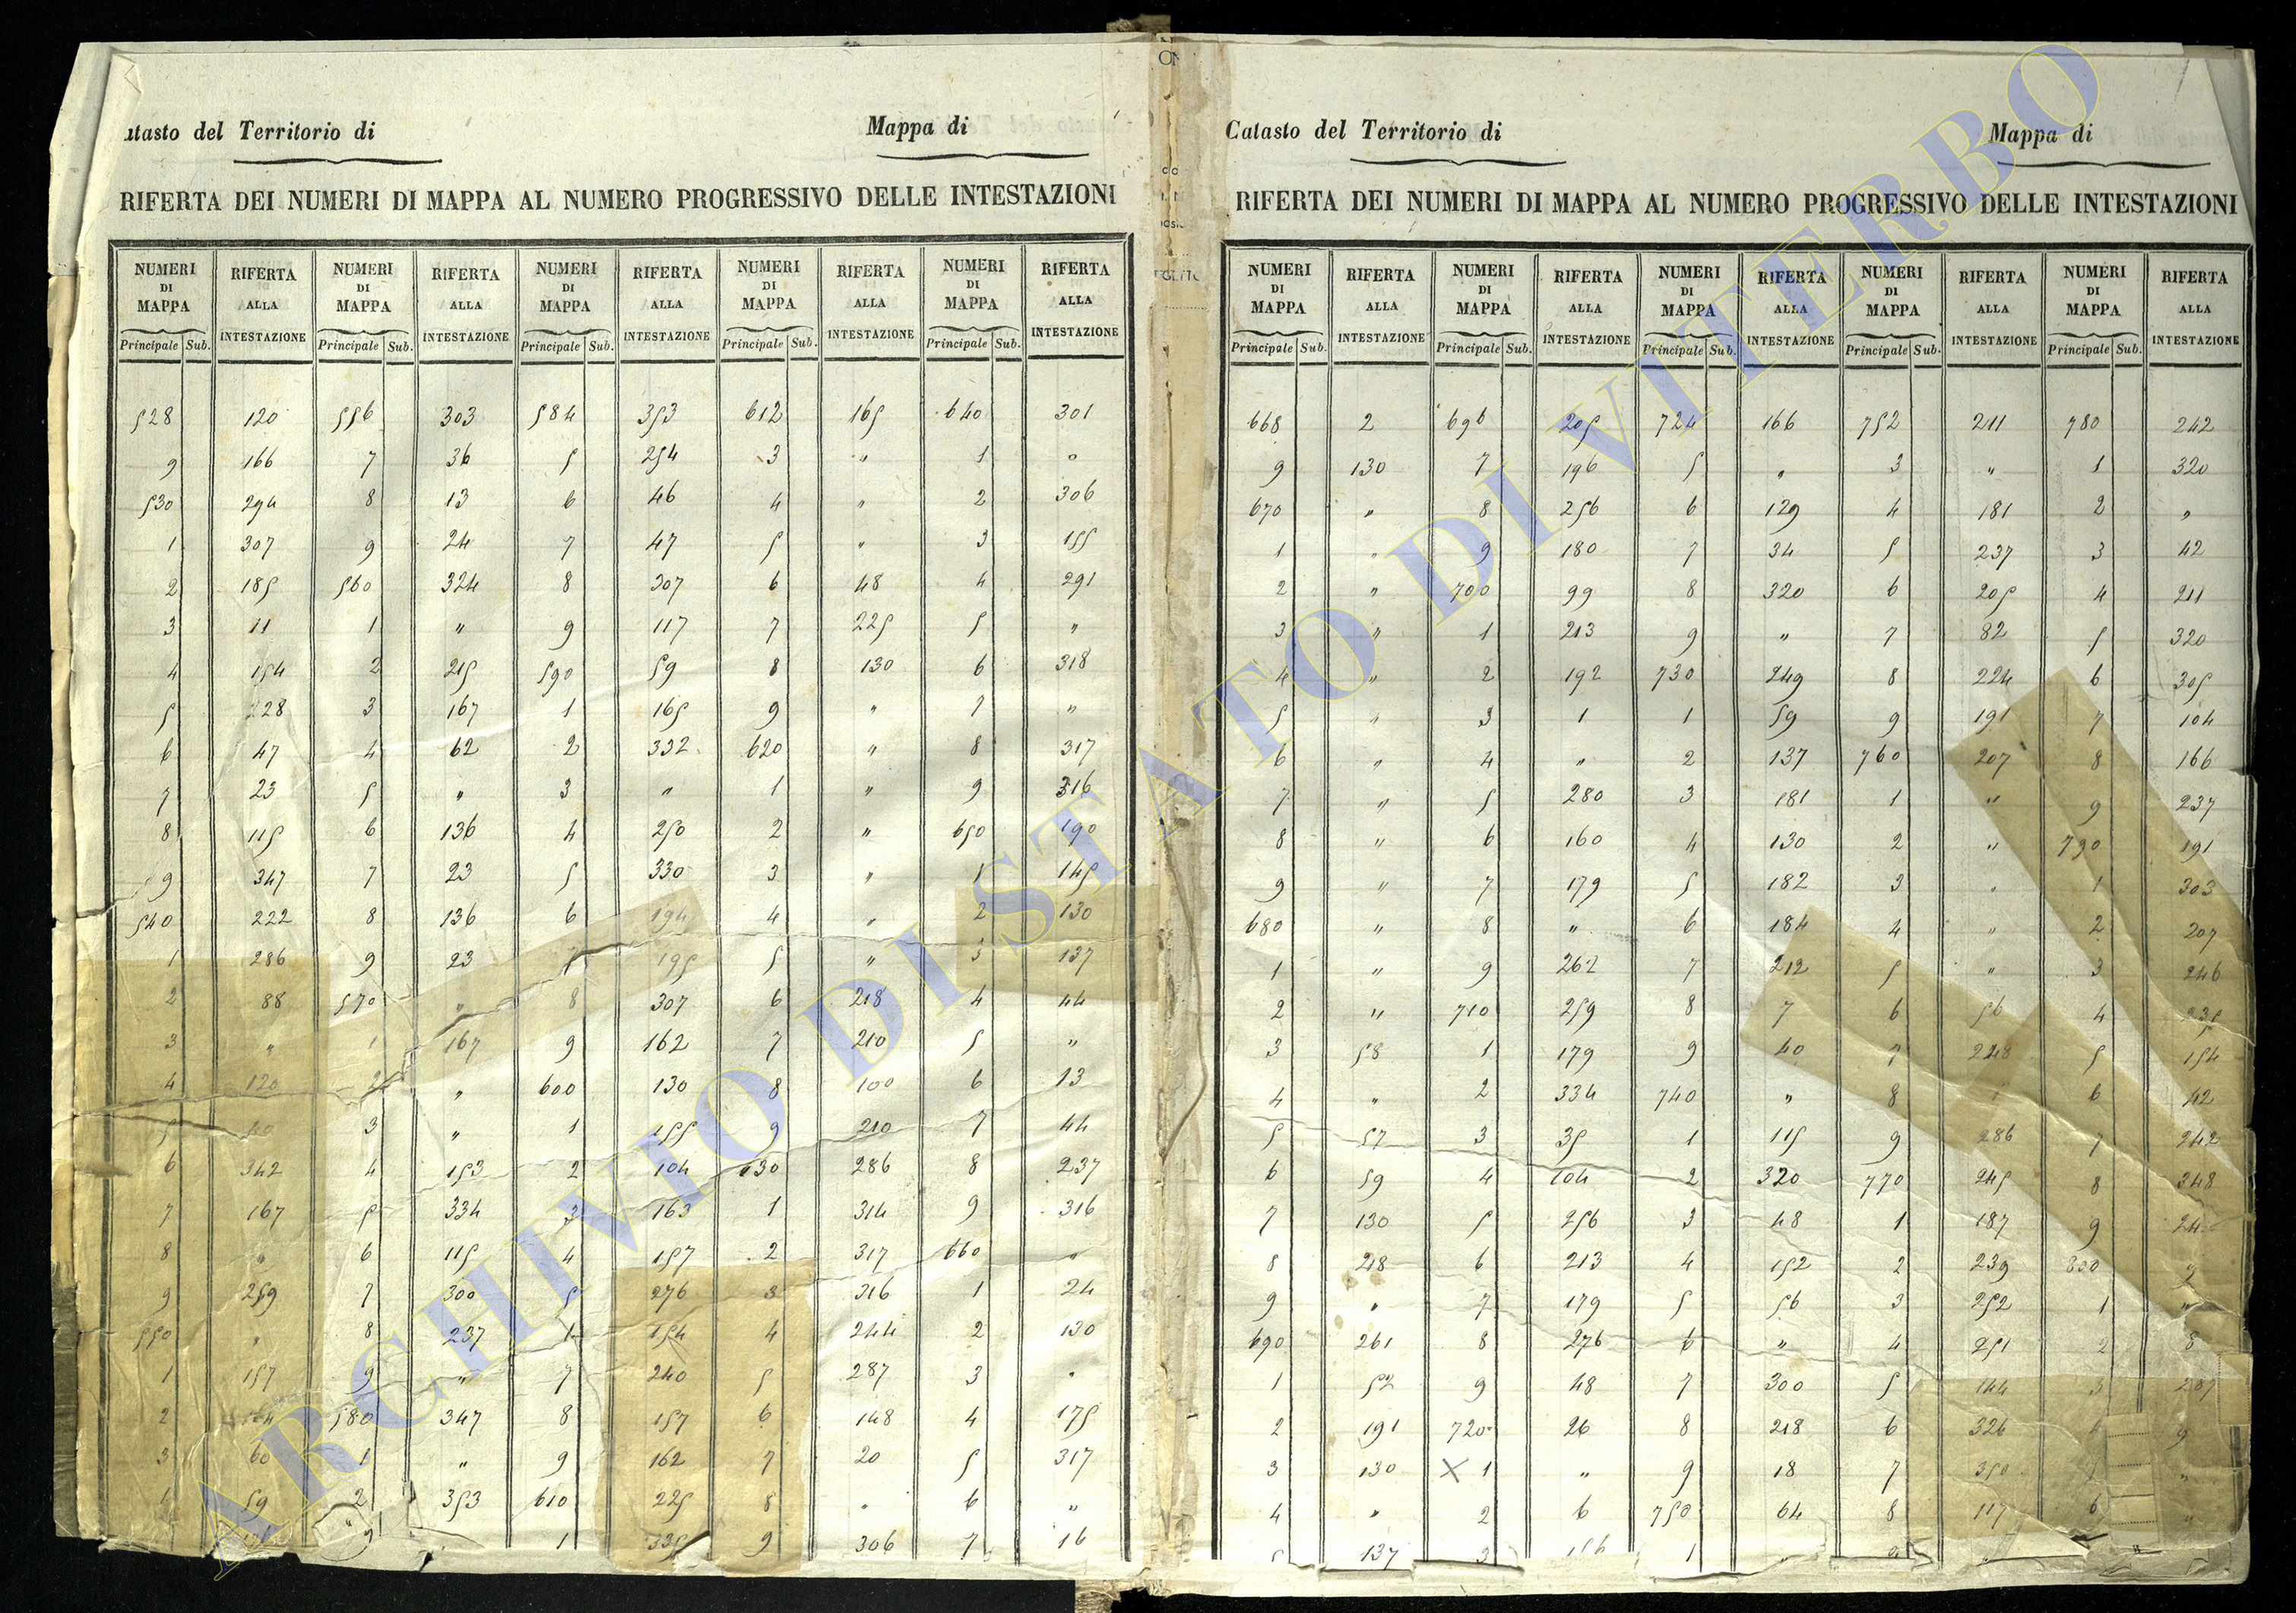 atasto del Territorio di Mappa di
RIFERTA DEI NUMERI DI MAPPA AL NUMERO PROGRESSIVO DELLE INTESTAZIONI
NUMERI DI MAPPA RIFERTA ALLA INTESTAZIONE NUMERI DI MAPPA RIFERTA ALLA INTESTAZIONE NUMERI DI MAPPA RIFERTA ALLA INTESTAZIONE NUMERI DI MAPPA RIFERTA ALLA INTESTAZIONE NUMERI DI MAPPA RIFERTA ALLA INTESTAZIONE
Principale Sub. Principale Sub. Principale Sub. Principale Sub. Principale Sub.
528 120 556 303 584 353 612 165 640 301
9 166 7 36 5 254 3 " 1 "
530 294 8 13 6 46 4 " 2 306
1 307 9 24 7 47 5 " 3 155
2 185 560 324 8 307 6 48 4 291
3 11 1 " 9 117 7 225 5 "
4 154 2 215 590 59 8 130 6 318
5 228 3 167 1 165 9 " 7 "
6 47 4 62 2 332 620 " 8 317
7 23 5 " 3 " 1 " 9 316
8 115 6 136 4 250 2 " 650 190
9 347 7 23 5 330 3 " 1 145
540 222 8 136 6 194 4 " 2 130
1 286 9 23 7 195 5 " 3 137
2 88 570 " 8 307 6 218 4 44
3 " 1 167 9 162 7 210 5 "
4 120 2 " 600 130 8 100 6 13
5 3 " 1 155 9 210 7 44
6 342 4 153 2 104 630 286 8 237
7 167 5 334 3 163 1 314 9 316
8 " 6 115 4 157 2 317 660 "
9 259 7 300 5 276 3 316 1 24
550 " 8 237 6 154 4 244 2 130
1 157 9 " 7 240 5 287 3 "
2 580 347 8 157 6 148 4 175
3 60 1 " 9 162 7 20 5 317
59 2 353 610 225 8 " 6 "
1 335 9 306 7 16
Catasto del Territorio di Mappa di
RIFERTA DEI NUMERI DI MAPPA AL NUMERO PROGRESSIVO DELLE INTESTAZIONI
NUMERI DI MAPPA RIFERTA ALLA INTESTAZIONE NUMERI DI MAPPA RIFERTA ALLA INTESTAZIONE NUMERI DI MAPPA RIFERTA ALLA INTESTAZIONE NUMERI DI MAPPA RIFERTA ALLA INTESTAZIONE NUMERI DI MAPPA RIFERTA ALLA INTESTAZIONE
Principale Sub. Principale Sub. Principale Sub. Principale Sub. Principale Sub.
668 2 696 205 724 166 752 211 780 242
9 130 7 196 5 " 3 " 1 320
670 " 8 256 6 129 4 181 2 "
1 " 9 180 7 34 5 237 3 42
2 " 700 99 8 320 6 205 4 211
3 " 1 213 9 " 7 82 5 320
4 " 2 192 730 249 8 224 6 305
5 " 3 1 1 59 9 191 7 104
6 " 4 " 2 137 760 207 8 166
7 " 5 280 3 181 1 " 9 237
8 " 6 160 4 130 2 " 790 191
9 " 7 179 5 182 3 " 1 303
680 " 8 " 6 184 4 " 2 207
1 " 9 262 7 212 5 " 3 246
2 " 710 259 8 7 6 56 4
3 58 1 179 9 40 7 248 5 154
4 " 2 334 740 " 8 6 42
5 57 3 35 1 115 9 286 7 242
6 59 4 104 2 320 770 245 8 248
7 130 5 256 3 48 1 187 9
8 218 6 213 4 152 2 239 800
9 " 7 179 5 56 3 252 1 "
690 261 8 276 6 " 4 251 2 8
1 52 9 48 7 300 5 144 3 287
2 191 720 26 8 218 6 326 9
3 130 X 1 " 9 18 7 350 "
4 " 2 6 750 64 8 117 6 "
5 137 3 156 1
ARCHIVIO DI STATO DI VITERBO